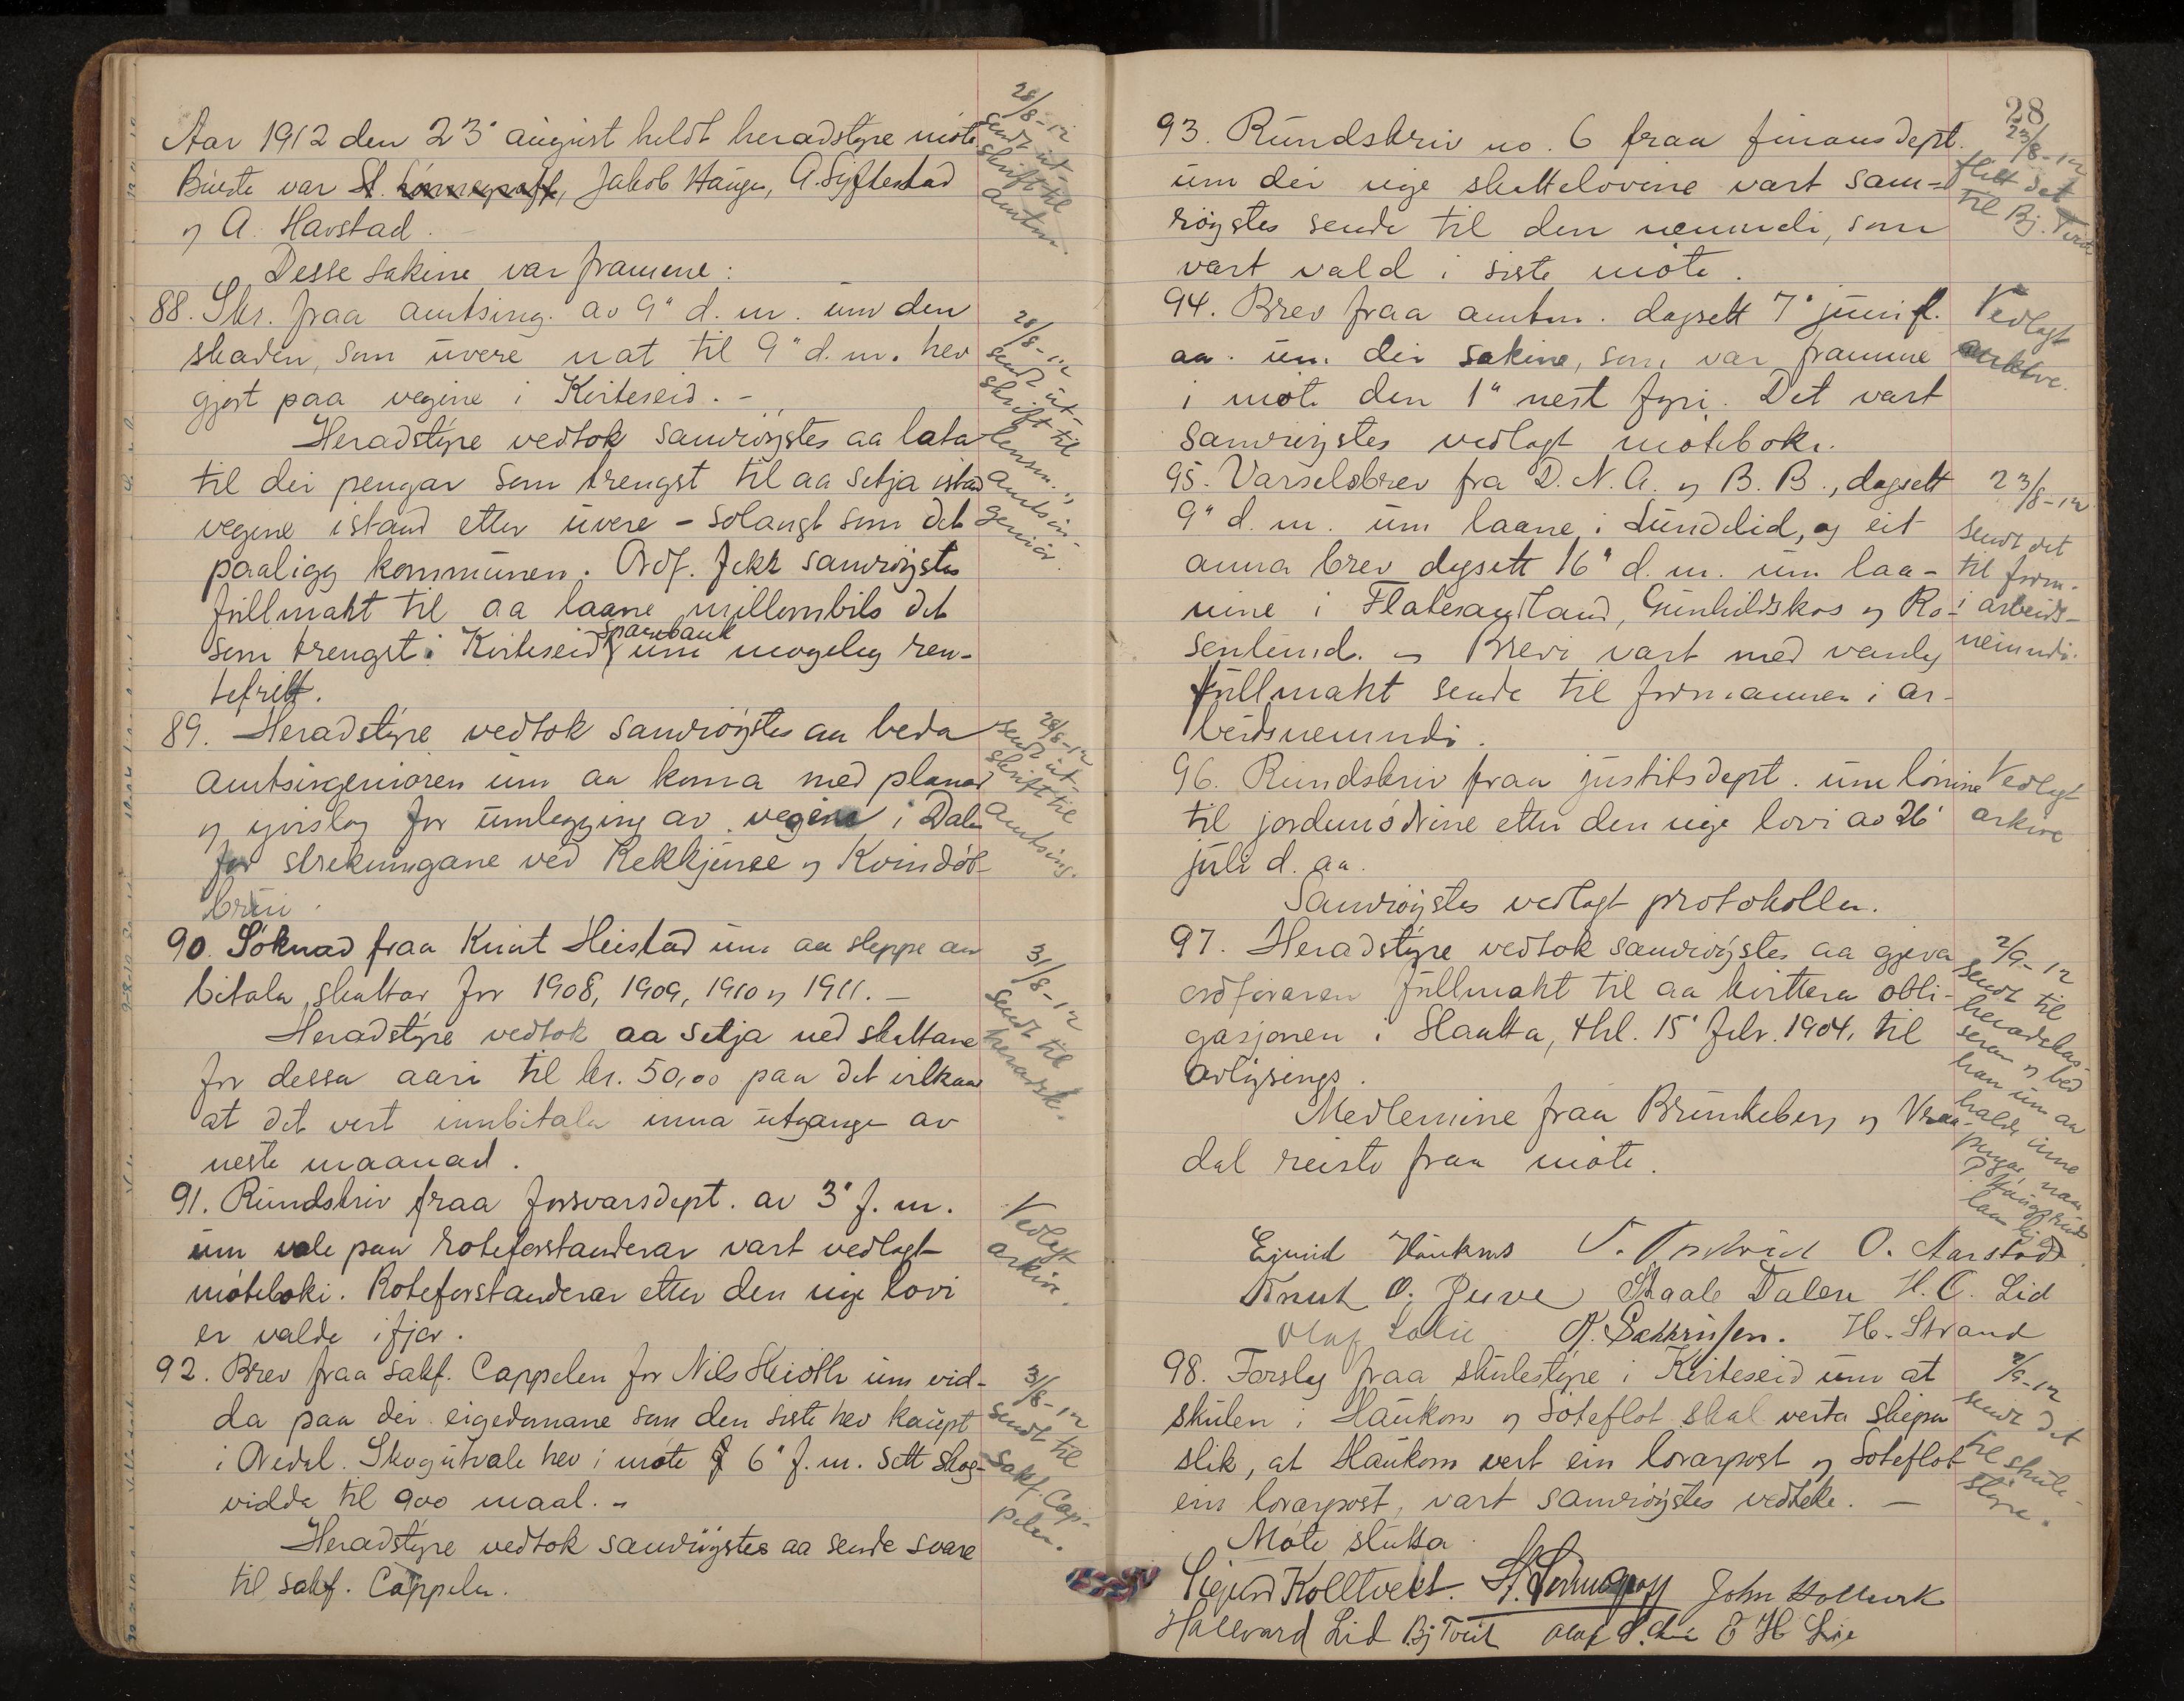 Aar 1912 den 23' august heldt heradstyre møte.
Burte var Sl. Jakob Hauge, A. Siftestad
og A. Havstad.
Desse sakine var framme:
88. Skr. fraa amtsing. av 9" d. m. um den
skaden, som uvere nat til 9" d. m. hev
gjort paa vegine i Kviteseid. -
Heradstyre vedtok samrøystes aa lata
til dei pengar som trengst til aa setja istad
vegene istand etter uvere - solangt som det
paaligg kommunen. Ordf. fekk samrøystes
fullmakt til aa laane millombils det
sparebank
som trengst i Kviteseid um mogeleg ren-
tefritt.
89. Heradstyre vedtok samrøystes aa beda
amtsingeniøren um aa koma med planar
og yvirslag for umlegging av vegine i Dalen
for strekningane ved Rekkjuse og Kvindøl-
brui.
90. Søknad fraa Knut Heistad um aa sleppe aa
bitala skattar for 1908, 1909, 1910 og 1911. -
Heradstyre vedtok aa setja ned skattane
for dessa aari til kr. 50,00 paa det vilkaar
at det vert innbitala inna utgange av
neste maanad.
91. Rundskriv fraa forsvarsdept. av 3' f. m.
um vale paa roteforstanderar vart vedlagt
møteboki. Roteforstanderar etter den nye lovi
er valde ifjor.
92. Brev fraa sakf. Cappelen for Nils Heioth um vid-
da paa dei eigedomane som den siste hev kaupt
i Nedal. Skogutvale hev i møte 6" f. m. sett skog-
vidda til 900 maal. -
Heradstyre vedtok samrøystes aa sende svare
til sakf. Cappelen.
28/8-12
sendt ut-
skrift til
amtm.
28/8-12
sendt ut-
skrift til
lensm. "
amtsin-
geniør.
28/8-12
sendt ut-
skrift til
amtsing.
31/8-12
sendt til
heradsk.
Vedlagt
arkive.
31/8-12
sendt til
sakf. Cap-
pelen.
28
93. Rundskriv no. 6 fraa finansdept.
um dei nye skattelovine vart sam-
røystes sende til den nemndi, som
vart vald i siste møte.
94. Brev fraa amtm. dagsett 7' juni f.
aa. um dei sakine, som var framme
i møte den 1" nest fyri. Det vart
samrøystes vedlagt møteboki.
95. Varselsbrev fra D. N. A. og B. B., dagsett
9" d. m. um laane i Lundelid, og eit
anna brev dagsett 16" d. m. um laa-
nine i Flatesandland, Gunhildskos og Ro-
senlund. - Brevi vart med vanleg
fullmakt sende til formannen i ar-
beidsnemndi.
96. Rundskriv fraa justitsdept. um lønine
til jordmødrine etter den nye lovi av 26'
juli d. aa.
Samrøystes vedlagt protokollen.
97. Heradstyre vedtok samrøystes aa gjeva
ordføraren fullmakt til aa kvittera obli-
gasjonen i Haatta, thl. 15' febr. 1904, til
avlysings.
Medlemine fraa Brunkeberg og Vraa-
dal reiste fraa møte.
Eivind Haukms O. Aarstad
Knut O. Juve Staale Dalen H. C. Lid
Olaf Lolie H. Strand
98. Forslag fraa skulestyre i Kviteseid um at
skulen i Haukom og Soteflot skal verta skipa
slik, at Haukom vert ein lovarpost og Soteflot
ein lovarpost, vart samrøystes vedteke. -
Møte slutta.
Sigurd Kolltveit. John Hollurk
Hallvard Lid Bj Tveit E H Lie
23/8-12
flitt det
til Bj. Tveit
Vedlagt
arkive.
23/8-12
sendt det
til form.
i arbeids-
nemndi.
Vedlagt
arkive
2/9-12
sendt til
heradskas-
seren og bed
han um aa
halde inne
pengar naar
2/9-12
sendt det
til skule-
styre.